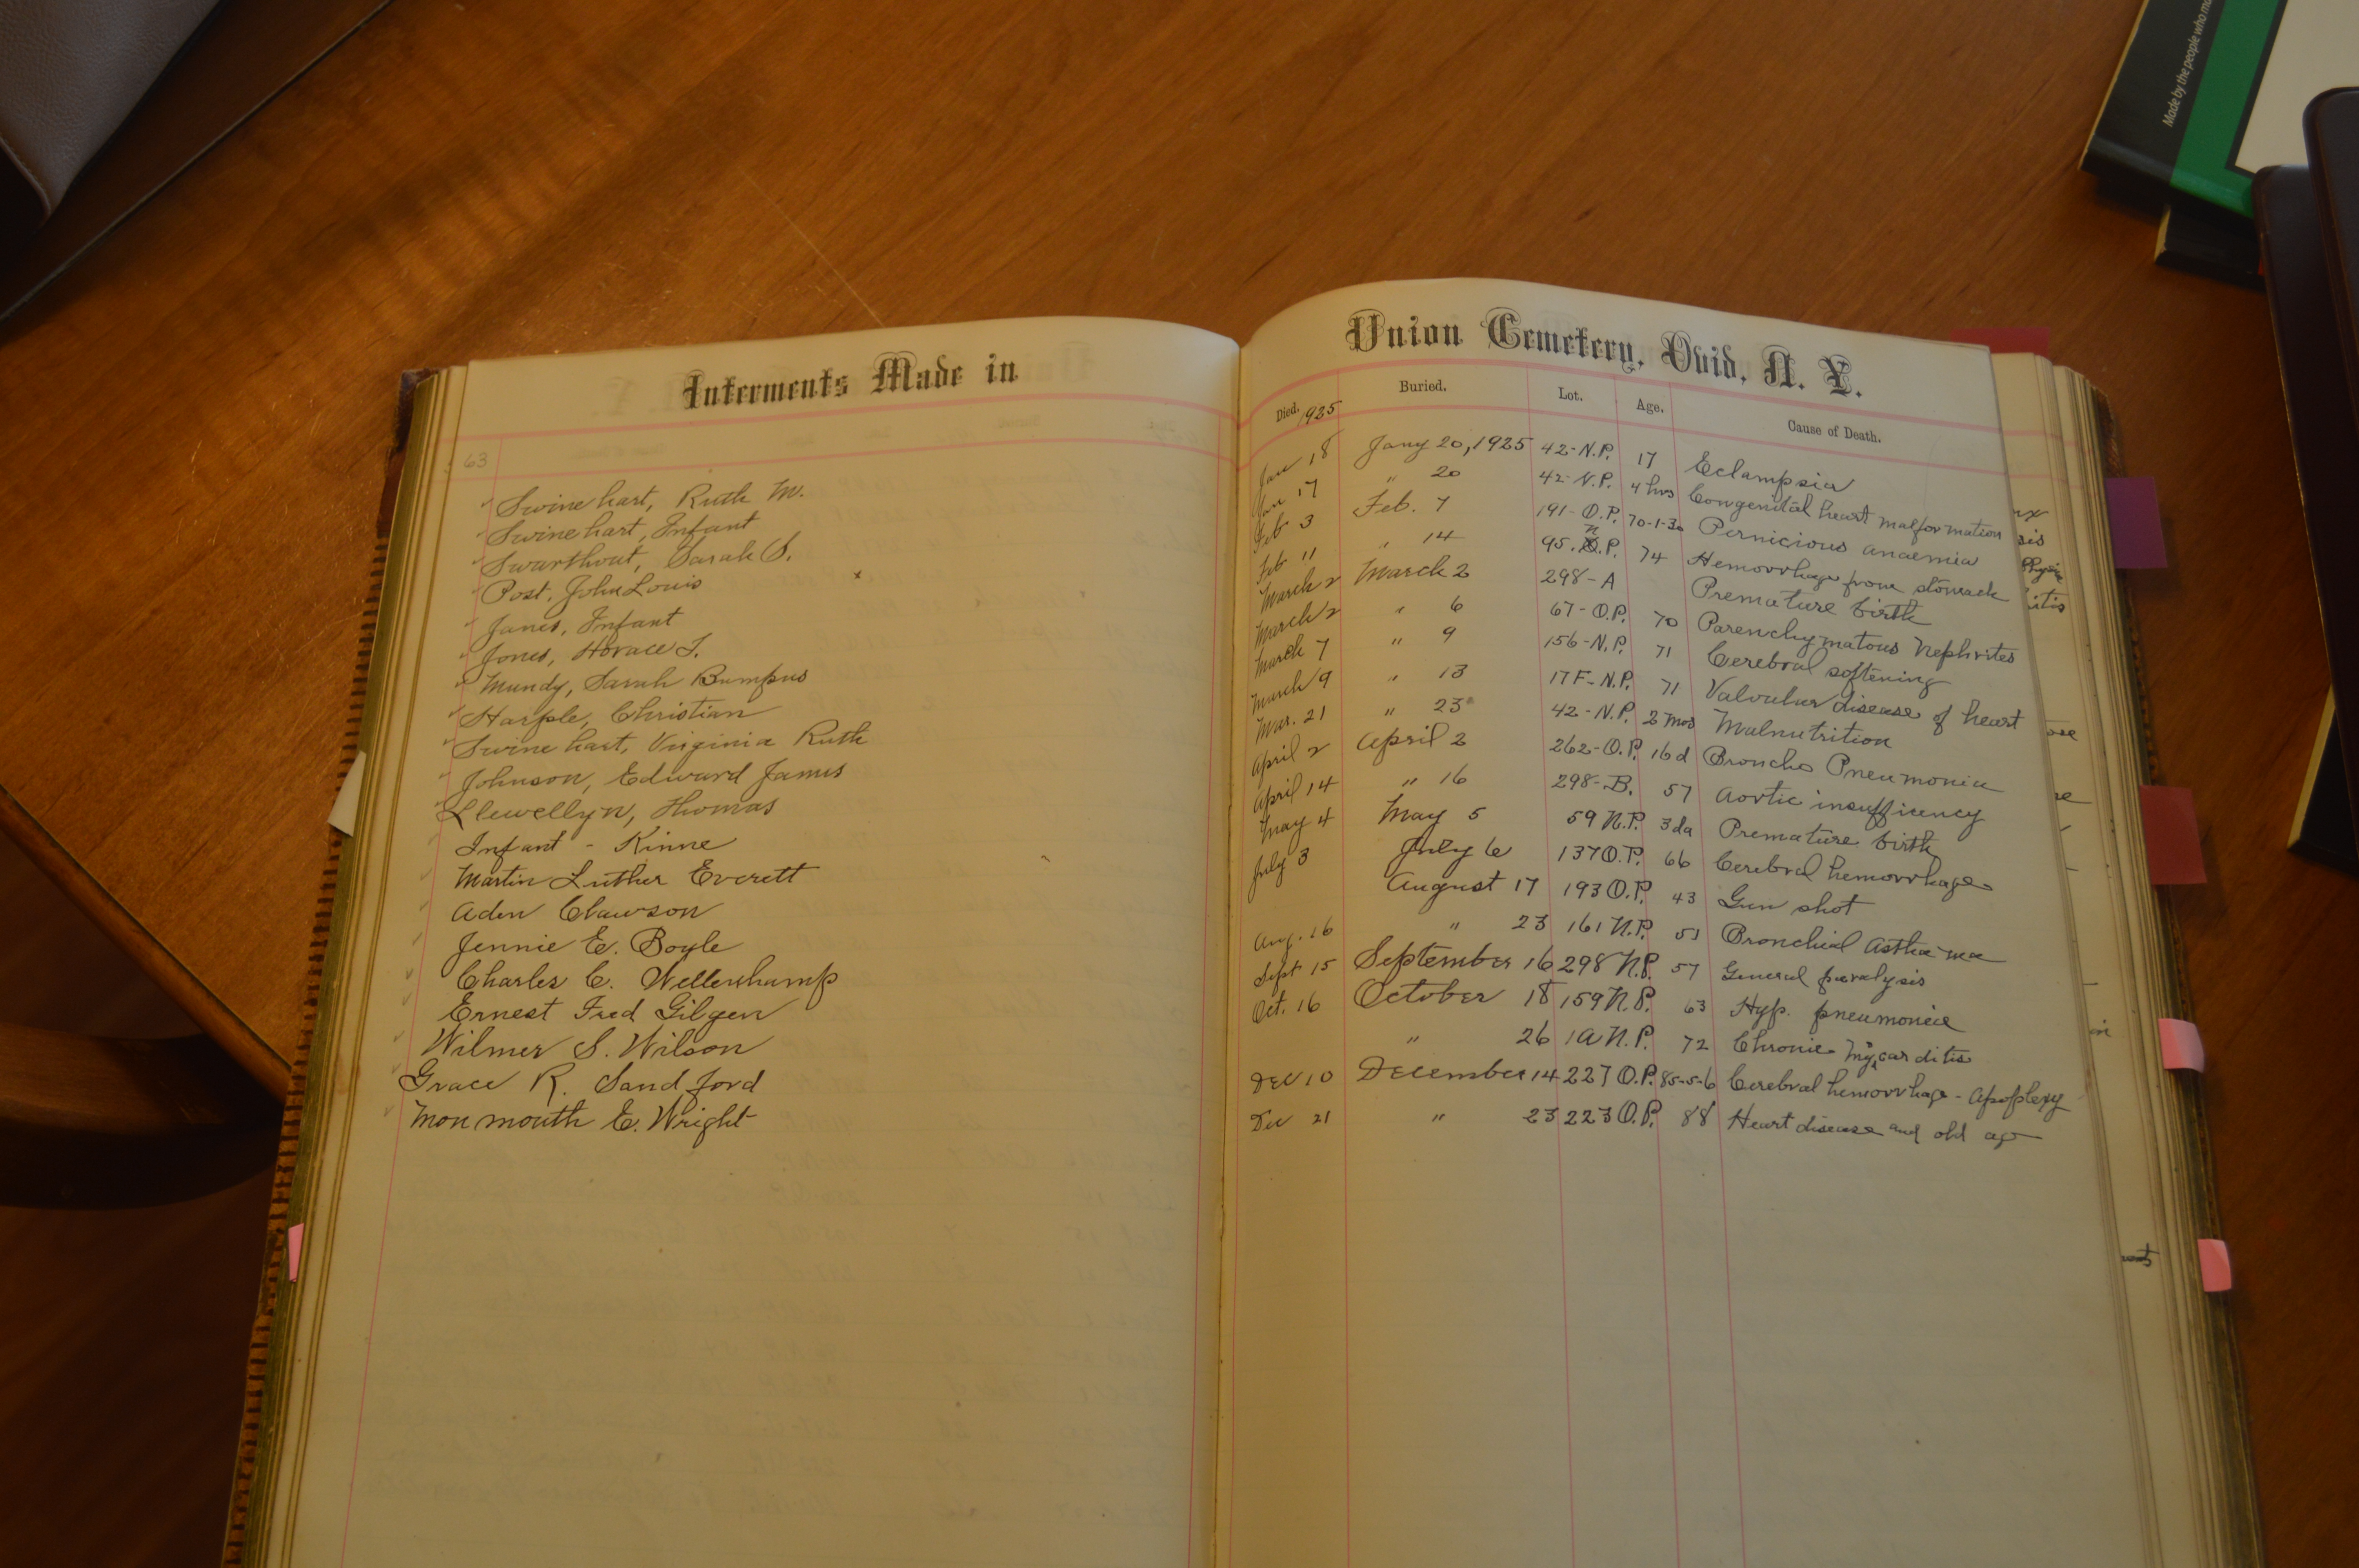 Made by the people who ma
Interments Made in
63
Swinehart, Ruth M.
Swinehart, Infant
Swarthout, Sarah S.
Post, John Louis
Janes, Infant
Jones, Horace T.
Mundy, Sarah Bumpus
Harple, Christian
Swinehart, Virginia Ruth
Johnson, Edward James
Llewellyn, Thomas
Infant - Kinne
Martin Luther Everett
Aden Clawson
Jennie E. Boyle
Charles C. Wellenhamp
Ernest Fred Gilgen
Wilmer S. Wilson
Grace R. Sandford
Monmouth E. Wright
Union Cemetery, Ovid, N. Y.
Died. 1925 Buried. Lot. Age. Cause of Death.
Jan 18 Jany 20, 1925 42-N.P. 17 Eclampsia
Jan 17 " 20 42-N.P. 4 hrs Congenital heart malformation
Feb 3 Feb. 7 191-O.P. 70-1-30 Pernicious anaemia
Feb 11 " 14 95. N.P. 74 Hemorrhage from stomach
March 2 March 2 298-A Premature birth
March 2 " 6 67-O.P. 70 Parenchymatous Nephrites
March 7 " 9 156-N.P. 71 Cerebral softening
March 9 " 13 17F-N.P. 71 Valvular disease of heart
Mar. 21 " 23 42-N.P. 2 mos Malnutrition
April 2 April 2 262-O.P. 16 d Broncho Pneumonia
April 14 " 16 298-B. 57 Aortic insufficency
May 4 May 5 59 N.P. 3 da Premature birth
July 3 July 6 137 O.P. 66 Cerebral hemorrhage
August 17 193 O.P. 43 Gun shot
Aug. 16 " 23 161 N.P. 51 Bronchial Asthma
Sept 15 September 16 298 N.P. 57 General paralysis
Oct. 16 October 18 159 N.P. 63 Hyp. pneumonia
" 26 1A N.P. 72 Chronic Myocarditis
Dec 10 December 14 227 O.P. 85-5-6 Cerebral hemorrhage - Apoplexy
Dec 21 " 23 223 O.P. 88 Heart disease and old age